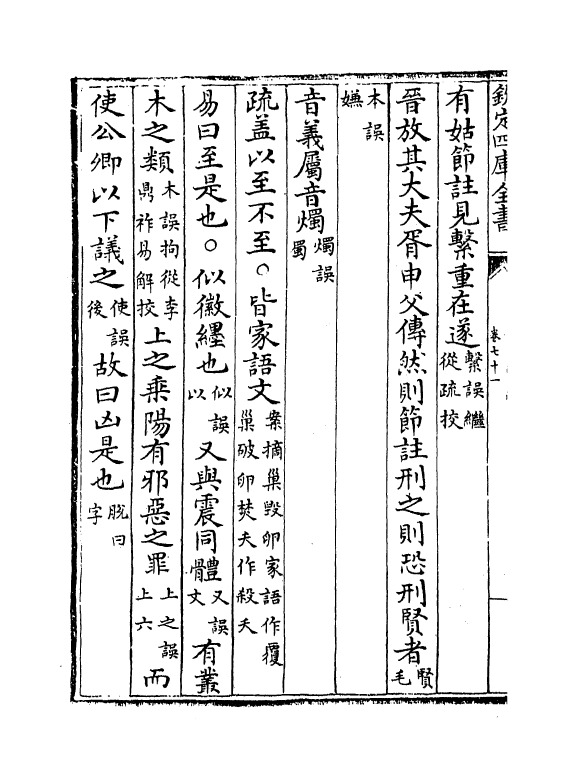 欽定四庫全書
卷七十一
有姑節註見繫重在遂繫誤繼從疏挍
晉放其大夫胥申父傳然則節註刑之則恐刑賢者賢毛
本誤嫌
音義屬音燭燭誤蜀
疏盖以至不至○皆家語文案摘巢毀卵家語作覆巢破卵焚夫作殺夭
易曰至是也○似徽纆也似誤以又與震同體又誤文有叢
木之類木誤拘從李鼎祚易解挍上之乘陽有邪惡之罪上之誤上六而
使公卿以下議之使誤後故曰凶是也脫曰字